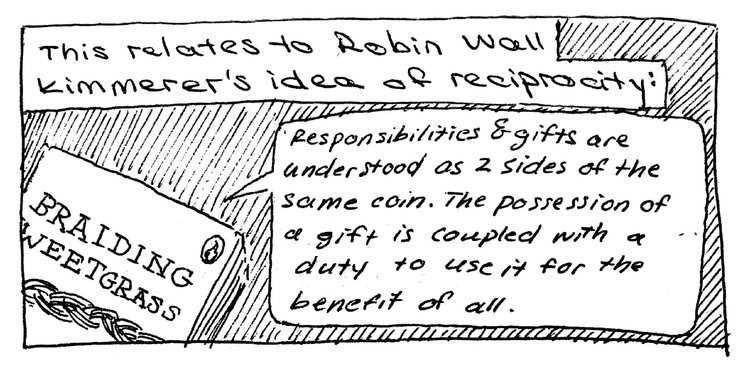 This relates to Robin Wall
Kimmerer's idea of reciprocity:
Responsibilities & gifts are
understood as 2 sides of the
same coin. The possession of
a gift is coupled with a
duty to use it for the
benefit of all.
BRAIDING
WEETGRASS